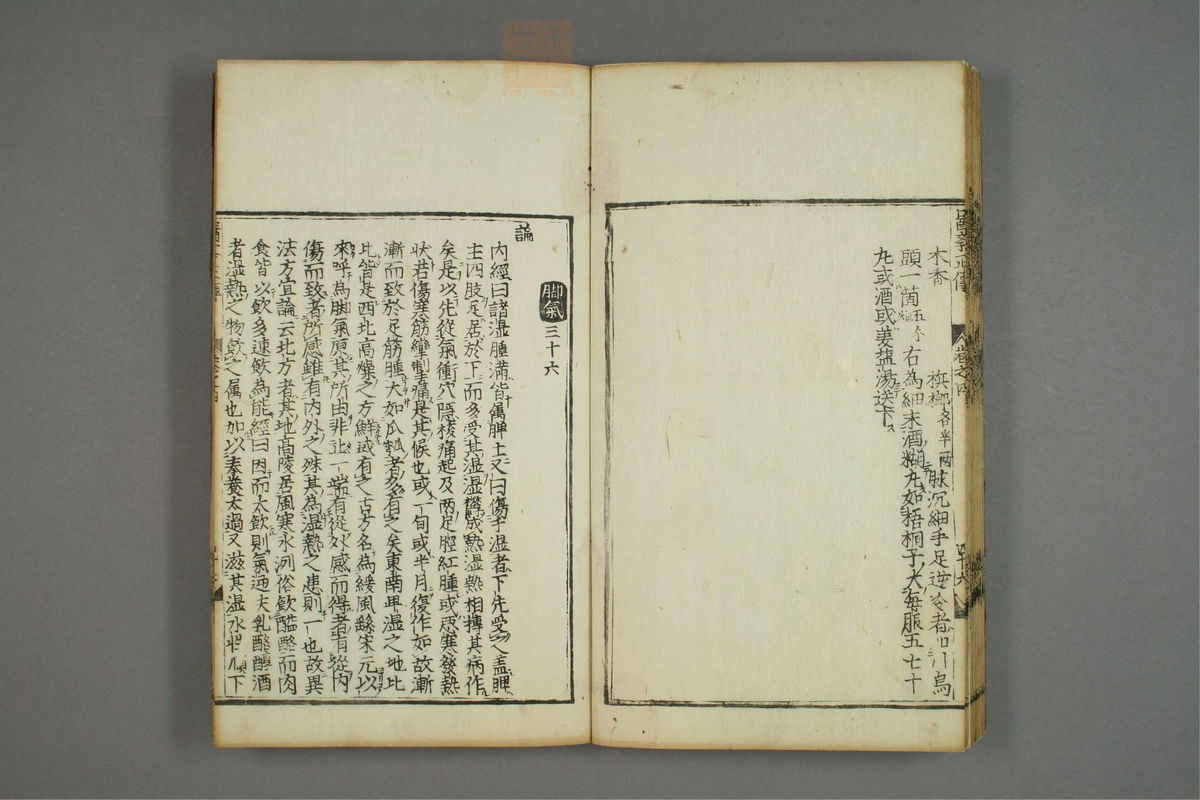 醫學正傳 卷之四 四十六
木香 檳榔各半兩 脉沉細手足逆冷者加川烏
頭一箇 右為細末酒糊丸如梧桐子大每服五七十
丸或酒或姜塩湯送下
脚氣三十六
論
内經曰諸湿腫滿皆属脾土又曰傷于湿者下先受之盖脾
主四肢足居於下而多受其湿湿欝成熱湿熱相摶其病作
矣是以先從氣衝穴隠核痛起及两足脛紅腫或惡寒發熱
状若傷寒筋攣掣痛是其候也或一旬或半月復作如故漸
漸而致於足筋腫大如瓜瓠者多有之矣東南卑湿之地比
比皆是西北高燥之方鮮或有之古方名為緩風繇宋元以
來呼為脚氣原其所由非止一端有從外感而得者有從内
傷而致者所感雖有内外之殊其為湿熱之患則一也故異
法方宜論云北方者其地高陵居風寒氷冽俗飲醯酪而肉
食皆以飲多速飲為能經曰因而太飲則氣逆夫乳酪醇酒
者湿熱之物飲之属也加以奉養太過又滋其湿水性順下